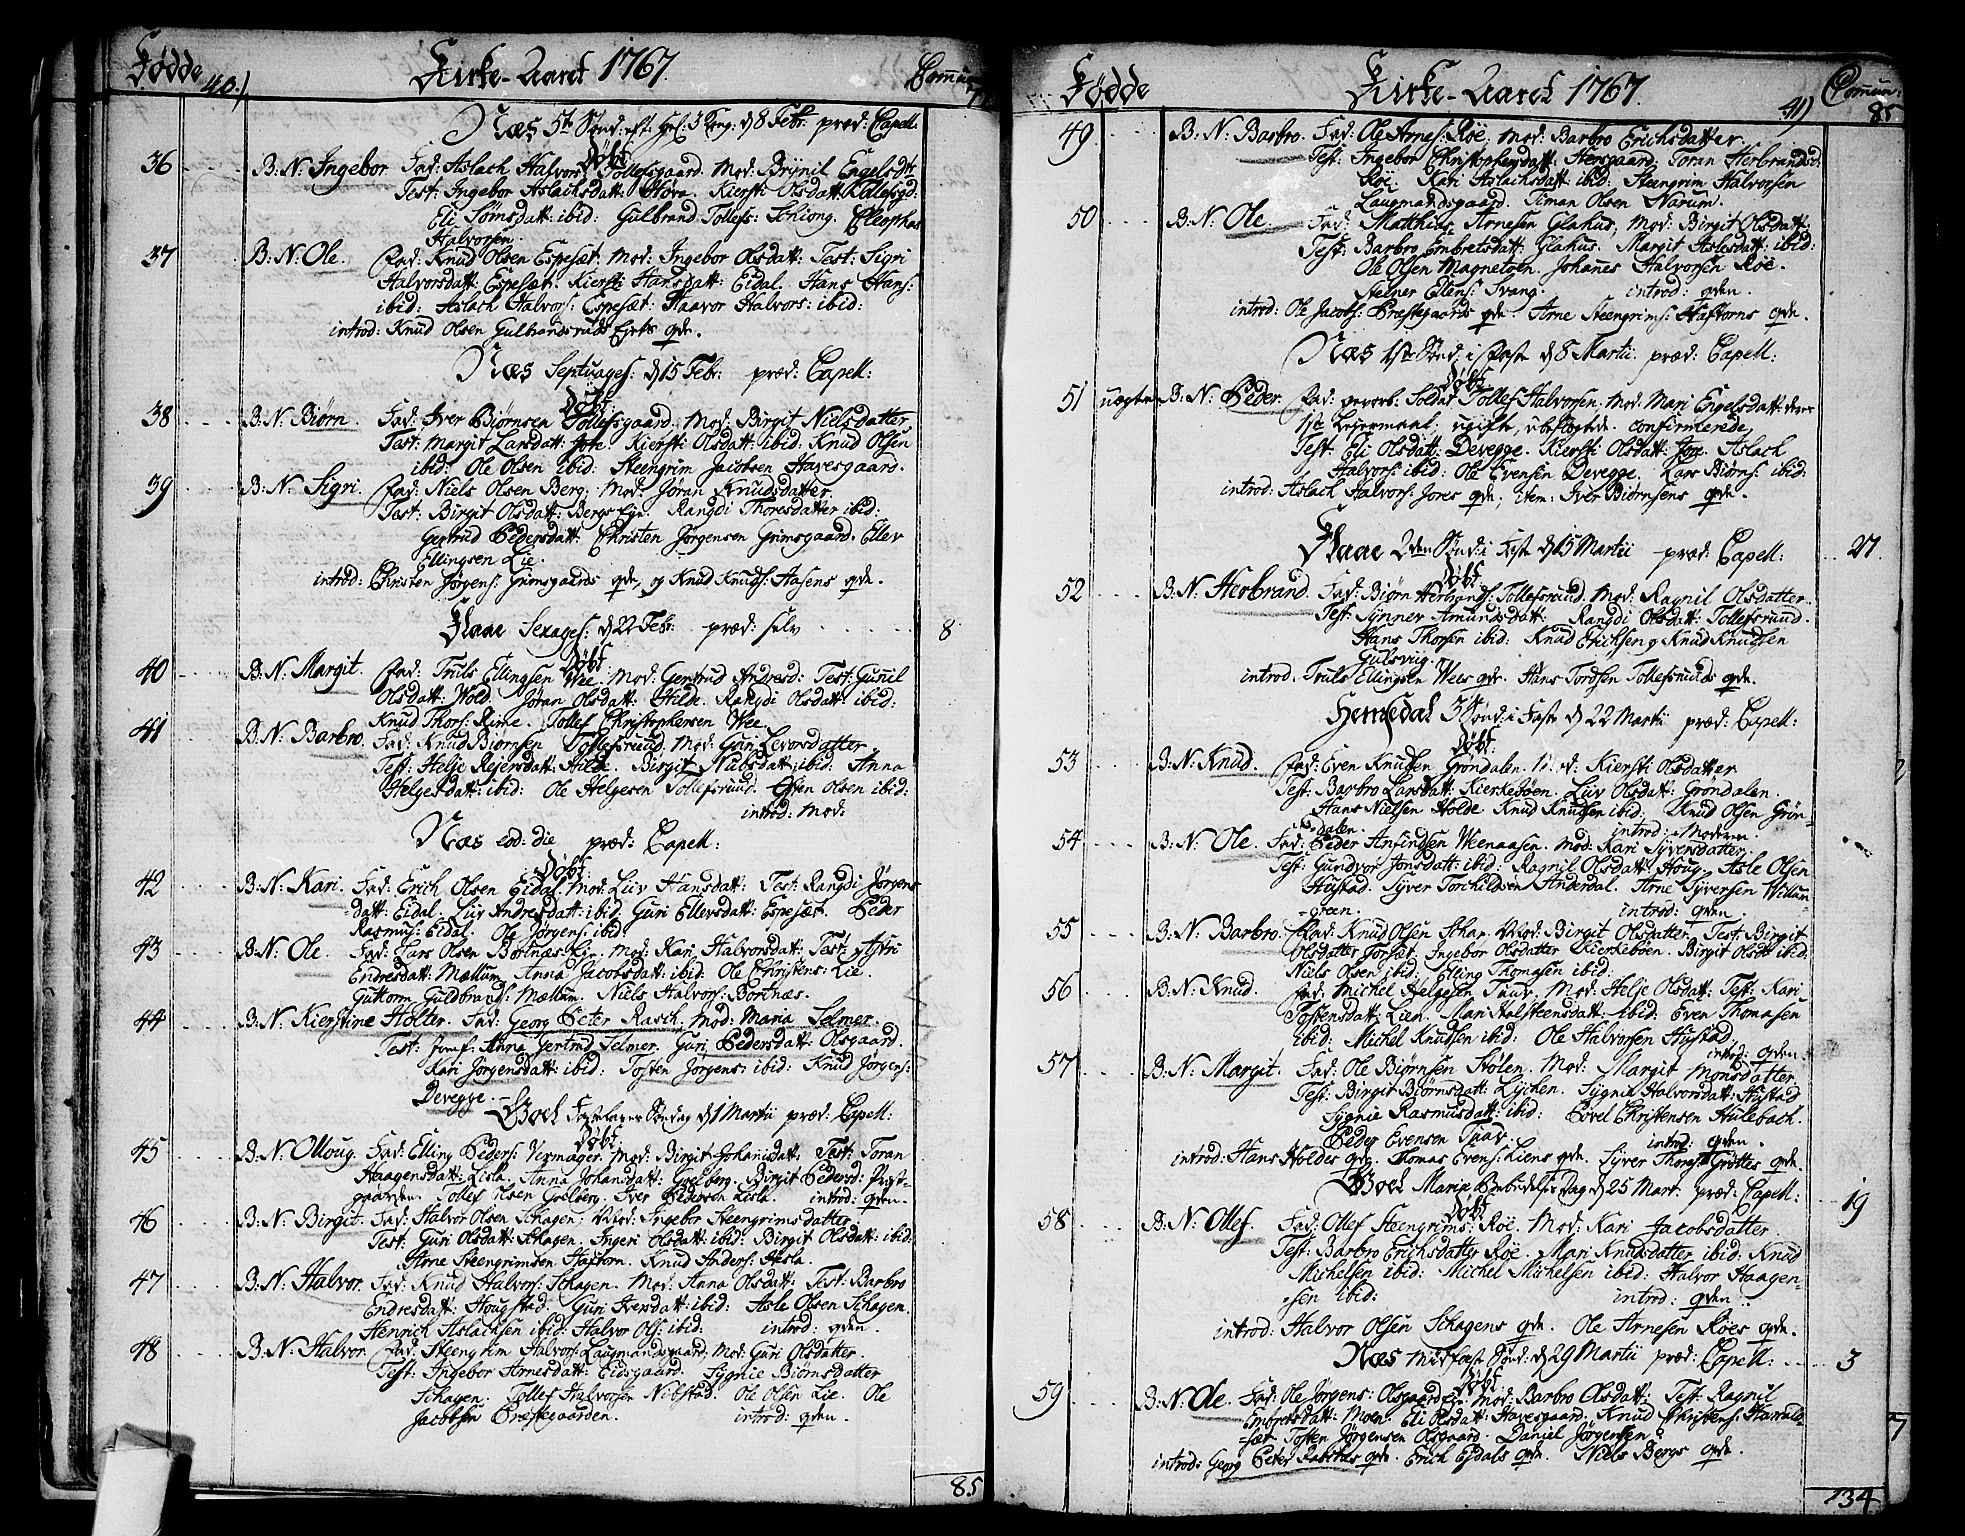 Fødde 40.) Kirke-Aaret 1767. Commun:
Næs 5te Sønd: eft: Hel: 3 Kong: d 8 Febr: præd: Capell:
Døbt.
36 B: N: Ingebor Fad: Aslach Halvors: Tollefsgaard. Mod: Brynil Engelsdtr
Test: Ingebor Aslachsdatt: Stova. Kiersti Olsdatt: Tollefsgd:
Eli Sømsdatt: ibid: Gulbrand Tollefs: Schiong. Cleophas
Halvorsen.
37 B: N: Ole. Fad: Knud Olsen Espesæt. Mod: Ingebor Olsdatt: Test: Sigri
Halvorsdatt: Espesæt. Kiersti Hansdatt: Eidal. Hans Hans:
ibid: Aslach Halvors: Espesæt. Haavor Halvors: ibid:
introd: Knud Olsen Gulbrandsruds Ejets qde.
Næs Septuages: d 15 Febr: præd: Capell:
Døbt.
38 B: N: Biørn. Fad: Iver Biørnsen Tollefsgaard. Mod: Birgit Nielsdatter
Test: Margit Larsdatt: Jore. Kiersti Olsdatt: ibid. Knud Olsen
ibid: Ole Olsen ibid: Steengrim Jacobsen Havesgaard.
39 B: N: Sigri. Fad: Niels Olsen Berg. Mod: Jøran Knudsdatter
Test: Birgit Olsdatt: Bergs Eje. Rangdi Thoresdatter ibid:
Gertrud Pedersdatt: Christen Jørgensen Grimsgaard. Ellev
Ellingsen Lie.
introd: Christen Jørgens: Grimsgaards qde, og Knud Knuds: Aasens qde.
Flaae Sexages: d 22 Febr: præd: selv 8
Døbt.
40 B: N: Margit. Fad: Truls Ellingsen Wee. Mod: Gertrud Andresd: Test: Gunil
Olsdatt: Wold. Jøran Olsdatt: Hilde. Rangdi Olsdatt: ibid:
Knud Thors: Rime. Tollef Christophersen Wee.
41 B: N: Barbro. Fad: Knud Biørnsen Tollefsruud. Mod: Guri Levorsdatter
Test: Helje Rejersdatt: Hilde. Birgit Nubsdatt: ibid. Anna
Helgesdatt: ibid: Ole Helgesen Tollefsruud. Esten Olsen ibid:
introd: Mod:
Næs eod: die præd: Capell:
Døbt.
42 B: N: Kari. Fad: Erich Olsen Eidal. Mod: Liiv Hansdatt: Test: Rangdi Jørgens
datt: Eidal. Liiv Andresdatt: ibid. Guri Ellersdatt: Espesæt. Peder
Rasmus: Eidal. Ole Jørgens: ibid:
43 B: N: Ole. Fad: Lars Olsen Bortnæs Eje. Mod: Kari Halvorsdatt: Test: Astri
Endresdatt: Mællum. Anna Jacobsdatt: ibid. Ole Christens: Lie.
Guttorm Guldbrands: Mællum. Niels Halvors: Bortnæs.
44 B: N: Kierstine Holter. Fad: Georg Peter Rasch. Mod: Maria Selmer.
Test: Jomf: Anna Gertrud Selmer. Guri Pedersdatt: Olsgaard.
Kari Jørgensdatt: ibid: Tosten Jørgens: ibid: Knud Jørgens:
Devegge.
Goel Fastelavns Søndag d 1 Martii præd: Capell:
Døbt.
45 B: N: Olloug. Fad: Elling Peders: Vermager. Mod: Birgit Johanisdatt: Test: Toran
Haagensdatt: Lisla. Anna Johansdatt: Goelberg. Birgit Pedersd: Præst-
gaarden. Tollef Olsen Goelberg. Iver Pedersen Lisla. introd: qden.
46 B: N: Birgit. Fad: Halvor Olsen Schagen; Mod: Ingebor Steengrimsdatter
Test: Guri Olsdatt: Schagen. Ingeri Olsdatt: ibid: Birgit Olsdatt: ibid:
Arne Steengrimsen Haftorn. Knud Anders: Aasla.
47 B: N: Halvor. Fad: Knud Halvors: Schagen. Mod: Anna Olsdatt: Test: Barbro
Endresdatt: Hougstad. Guri Iversdatt: ibid: Asle Olsen Schagen.
Henrich Aslachsen ibid: Halvor Ols: ibid. introd: qden.
48 B: N: Halvor. Fad: Steengrim Halvors: Laugmandsgaard. Mod: Guri Olsdatter.
Test: Ingebor Arnesdatt: Eidsgaard. Sygnie Biørnsdatter
Schagen. Tollef Halvorsen Nibstad. Ole Olsen Lie. Ole
Jacobsen Præstegaarden. introd: qden.
85
Fødde Kirke-Aaret 1767. 41) Commun:
85
49 B: N: Barbro. Fad: Ole Arnes: Røe, Mod: Barbro Erichsdatter
Test: Ingebor Christophersdatt: Hersgaard. Toran Herbrandsd:
Røe. Kari Aslachsdatt: ibid: Steengrim Halvorsen
Laugmandsgaard. Timan Olsen Narum.
50 B: N: Ole. Fad: Matthias Arnesen Glahus, Mod: Birgit Olsdatt:
Test: Barbro Embretsdatt: Glahus. Margit Aslesdatt: ibid:
Ole Olsen Magnetoen. Johanes Halvorsen Røe.
Steiner Ellens: Svang. introd: qden.
introd: Ole Jacobs: Præstegaards qde. Arne Steengrims: Haftorns qde.
Næs 1ste Sønd: i Faste d 8 Martii. præd: Capell:
Døbt.
51 uægte B: N: Peder. Fad: Soldat Tollef Halvorsen, Mod: Mari Engelsdatt: deres
1ste Lejermaal; ugifte, ubeslægtede. confirmerede,
Test: Eli Olsdatt: Devegge. Kiersti Olsdatt: Jore. Aslach
Halvors: ibid: Ole Evensen Devegge. Lars Biørns: ibid:
introd: Aslach Halvors: Jores qde; item: Iver Biørnsens qde.
Flaae 2den Sønd: i Faste d 15 Martii præd: Capell: 27.
Døbt.
52 B: N: Herbrand. Fad: Biørn Herbrands: Tollefsruud. Mod: Ragnil Olsdatter.
Test: Synner Amundsdatt: Rangdi Olsdatt: Tollefsruud.
Hans Thorsen ibid: Knud Erichsen og Knud Knudsen
Gulsviig.
introd: Truls Ellingsen Wees qde. Hans Tordsen Tollefsruuds qde.
Hemsedal 3 Sønd: i Faste d 22 Martii præd: Capell:
Døbt.
53 B: N: Knud. Fad: Even Knudsen Grøndalen. Mod: Kiersti Olsdatter
Test: Barbro Larsdatt: Kierkebøen. Liiv Olsdatt: Grøndalen.
Hans Nielsen Holde. Knud Knudsen ibid: Knud Olsen Grøn-
dalen. introd: Moderen.
54 B: N: Ole. Fad: Peder Anfindsen Weenaasen. Mod: Kari Syversdatter.
Test: Gundvor Jonsdatt: ibid: Ragnil Olsdatt: Houg. Asle Olsen
Hustad. Syver Torchildsen Anderdal. Arne Syversen Willum-
green. introd: qden.
55 B: N: Barbro. Fad: Knud Olsen Schar. Mod: Birgit Olsdatter. Test: Birgit
Olsdatter Torset. Ingebor Olsdatter Kierkebøen. Birgit Olsdr ibid:
Niels Olsen ibid: Elling Thomasen ibid:
56 B: N: Knud. Fad: Michel Helgesen Tuuv. Mod: Helje Olsdatt: Test: Kari
Tostensdatt: Lien. Mari Halsteensdatt: ibid: Even Thomasen
ibid: Michel Knudsen ibid: Ole Halvorsen Hustad.
introd: qden.
57 B: N: Margit. Fad: Ole Biørnsen Stølen. Mod: Margit Monsdatter
Test: Birgit Biørnsdatt: Lychen. Sygnil Halvorsdatt: Hustad
Sygnie Rasmusdatt: ibid: Povel Christensen Hulebach.
Peder Evensen Tuuv. introd: qden.
introd: Hans Holdes qde. Thomas Evens: Liens qde. Syver Thores: Grøttes qde.
Goel Mariæ Bebudelses Dag d 25 Mart: præd: Capell: 19
Døbt.
58 B: N: Ollef. Fad: Ollef Steengrims: Røe. Mod: Kari Jacobsdatter
Test: Barbro Erichsdatter Røe. Mari Knudsdatter ibid: Knud
Michelsen ibid: Michel Michelsen ibid: Halvor Haagen-
sen ibid: introd: qden.
introd: Halvor Olsen Schagens qde. Ole Arnesen Røes qde.
Næs Midfaste Sønd: d 29 Martii præd: Capell: 3
Døbt.
59 B: N: Ole. Fad: Ole Jørgens: Olsgaard Eje. Mod: Barbro Olsdatt: Test: Ragnil
Embretsdatt: Moen. Eli Olsdatt: Havesgaard. Knud Christens: Haralds-
sæt. Tosten Jørgensen Olsgaard. Daniel Jørgensen
introd: Georg Peter Rasches qde. Erich Ejdals qde. Niels Bergs qde.
134